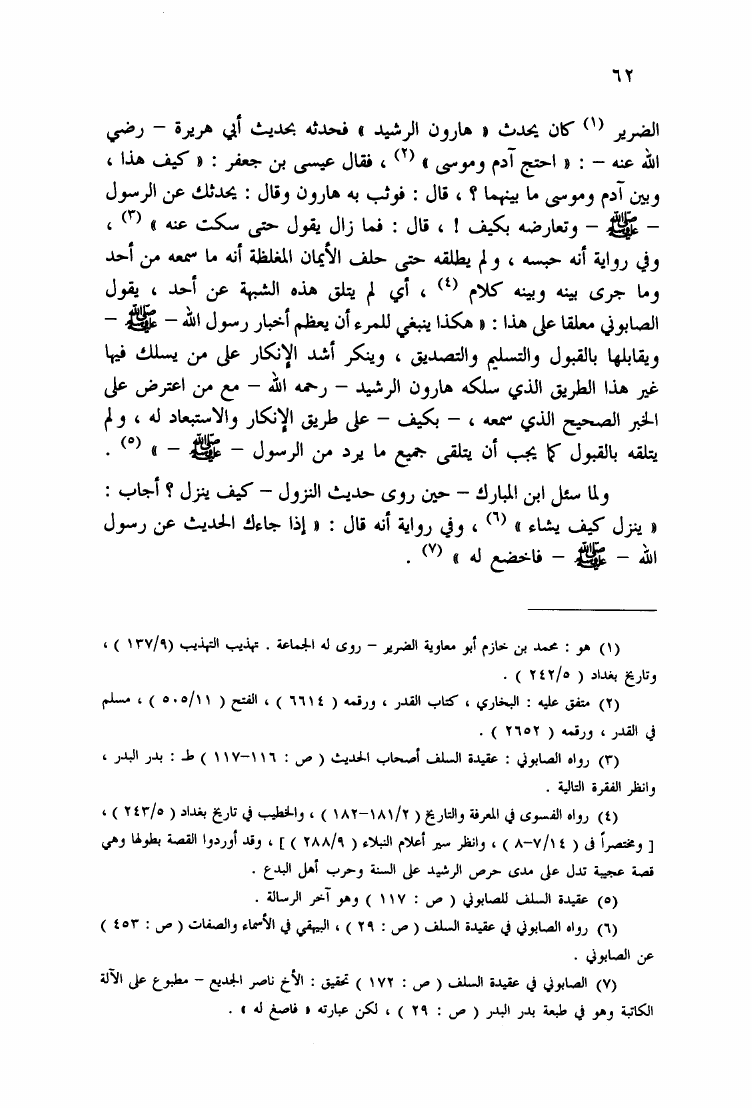 ٦٢
الضرير (١) كان يحدث « هارون الرشيد » فحدثه بحديث أبي هريرة – رضي
الله عنه – : « احتج آدم وموسى » (٢) ، فقال عيسى بن جعفر : « كيف هذا ،
وبين آدم وموسى ما بينهما ؟ ، قال : فوثب به هارون وقال : يحدثك عن الرسول
– ﷺ – وتعارضه بكيف ! ، قال : فما زال يقول حتى سكت عنه » (٣) ،
وفي رواية أنه حبسه ، ولم يطلقه حتى حلف الأيمان المغلظة أنه ما سمعه من أحد
وما جرى بينه وبينه كلام (٤) ، أي لم يتلق هذه الشبهة عن أحد ، يقول
الصابوني معلقا على هذا : « هكذا ينبغي للمرء أن يعظم أخبار رسول الله – ﷺ –
ويقابلها بالقبول والتسليم والتصديق ، وينكر أشد الإنكار على من يسلك فيها
غير هذا الطريق الذي سلكه هارون الرشيد – رحمه الله – مع من اعترض على
الخبر الصحيح الذي سمعه ، – بكيف – على طريق الإنكار والاستبعاد له ، ولم
يتلقه بالقبول كما يجب أن يتلقى جميع ما يرد من الرسول – ﷺ – » (٥) .
ولما سئل ابن المبارك – حين روى حديث النزول – كيف ينزل ؟ أجاب :
« ينزل كيف يشاء » (٦) ، وفي رواية أنه قال : « إذا جاءك الحديث عن رسول
الله – ﷺ – فاخضع له » (٧) .
(١) هو : محمد بن خازم أبو معاوية الضرير – روى له الجماعة . تهذيب التهذيب (١٣٧/٩ ) ،
وتاريخ بغداد ( ٢٤٢/٥ ) .
(٢) متفق عليه : البخاري ، كتاب القدر ، ورقمه ( ٦٦١٤ ) ، الفتح ( ٥٠٥/١١ ) ، مسلم
في القدر ، ورقمه ( ٢٦٥٢ ) .
(٣) رواه الصابوني : عقيدة السلف أصحاب الحديث ( ص : ١١٦–١١٧ ) طـ : بدر البدر ،
وانظر الفقرة التالية .
(٤) رواه الفسوى في المعرفة والتاريخ ( ١٨١/٢–١٨٢ ) ، والخطيب في تاريخ بغداد ( ٢٤٣/٥ ) ،
[ ومختصراً في ( ٧/١٤–٨ ) ، وانظر سير أعلام النبلاء ( ٢٨٨/٩ ) ] ، وقد أوردوا القصة بطولها وهي
قصة عجيبة تدل على مدى حرص الرشيد على السنة وحرب أهل البدع .
(٥) عقيدة السلف للصابوني ( ص : ١١٧ ) وهو آخر الرسالة .
(٦) رواه الصابوني في عقيدة السلف ( ص : ٢٩ ) ، البيهقي في الأسماء والصفات ( ص : ٤٥٣ )
عن الصابوني .
(٧) الصابوني في عقيدة السلف ( ص : ١٧٢ ) تحقيق : الأخ ناصر الجديع – مطبوع على الآلة
الكاتبة وهو في طبعة بدر البدر ( ص : ٢٩ ) ، لكن عبارته « فاصغ له » .